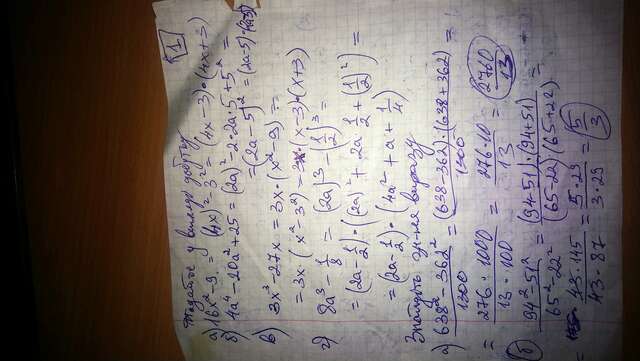 1
Подайте у вигляді добутку.
а) 16x² - 9 = (4x)² - 3² = (4x - 3)·(4x + 3)
б) 4a⁴ - 20a² + 25 = (2a)² - 2·2a·5 + 5² =
= (2a - 5)² = (2a - 5)·(2a - 5)
в) 3x³ - 27x = 3x·(x² - 9) =
= 3x·(x² - 3²) = 3x·(x - 3)·(x + 3)
г) 8a³ - 1/8 = (2a)³ - (1/2)³ =
= (2a - 1/2)·((2a)² + 2a·1/2 + (1/2)²) =
= (2a - 1/2)·(4a² + a + 1/4)
Знайдіть зн-ня виразу
а) (638² - 362²)/1300 = (638 - 362)·(638 + 362)/1300 =
= 276·1000/13·100 = 276·10/13 = 2760/13
б) (94² - 51²)/(65² - 22²) = (94 - 51)·(94 + 51)/(65 - 22)·(65 + 22) =
= 43·145/43·87 = 5·29/3·29 = 5/3